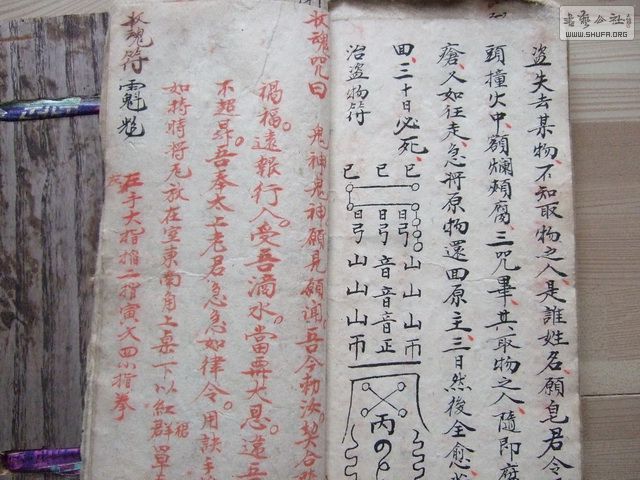 盗失去某物不知取物之人是誰姓名願皂君令
頭撞火中額爛頰腐三咒畢其取物之人隨即
瘡人如往走急將原物還囬原主三日然後全愈
囬三十日必死
治盗物符
巳 巳 巳
日 日 日
弓 弓 弓
山 音 山
山 音 山
山 音 山
帀 正 帀
丙
收魂咒曰 鬼神鬼神願見願闻吾今勅汝契合
禍福遠報行人受吾滴水當再大恩違吾
不超昇吾奉太上老君急急如律令用訣手
如持時將尼放在室東南角上桌下以紅群裙單
左手大指掐二指寅文四小指拳
收魂符
書艺公社
WWW.SHUFA.ORG